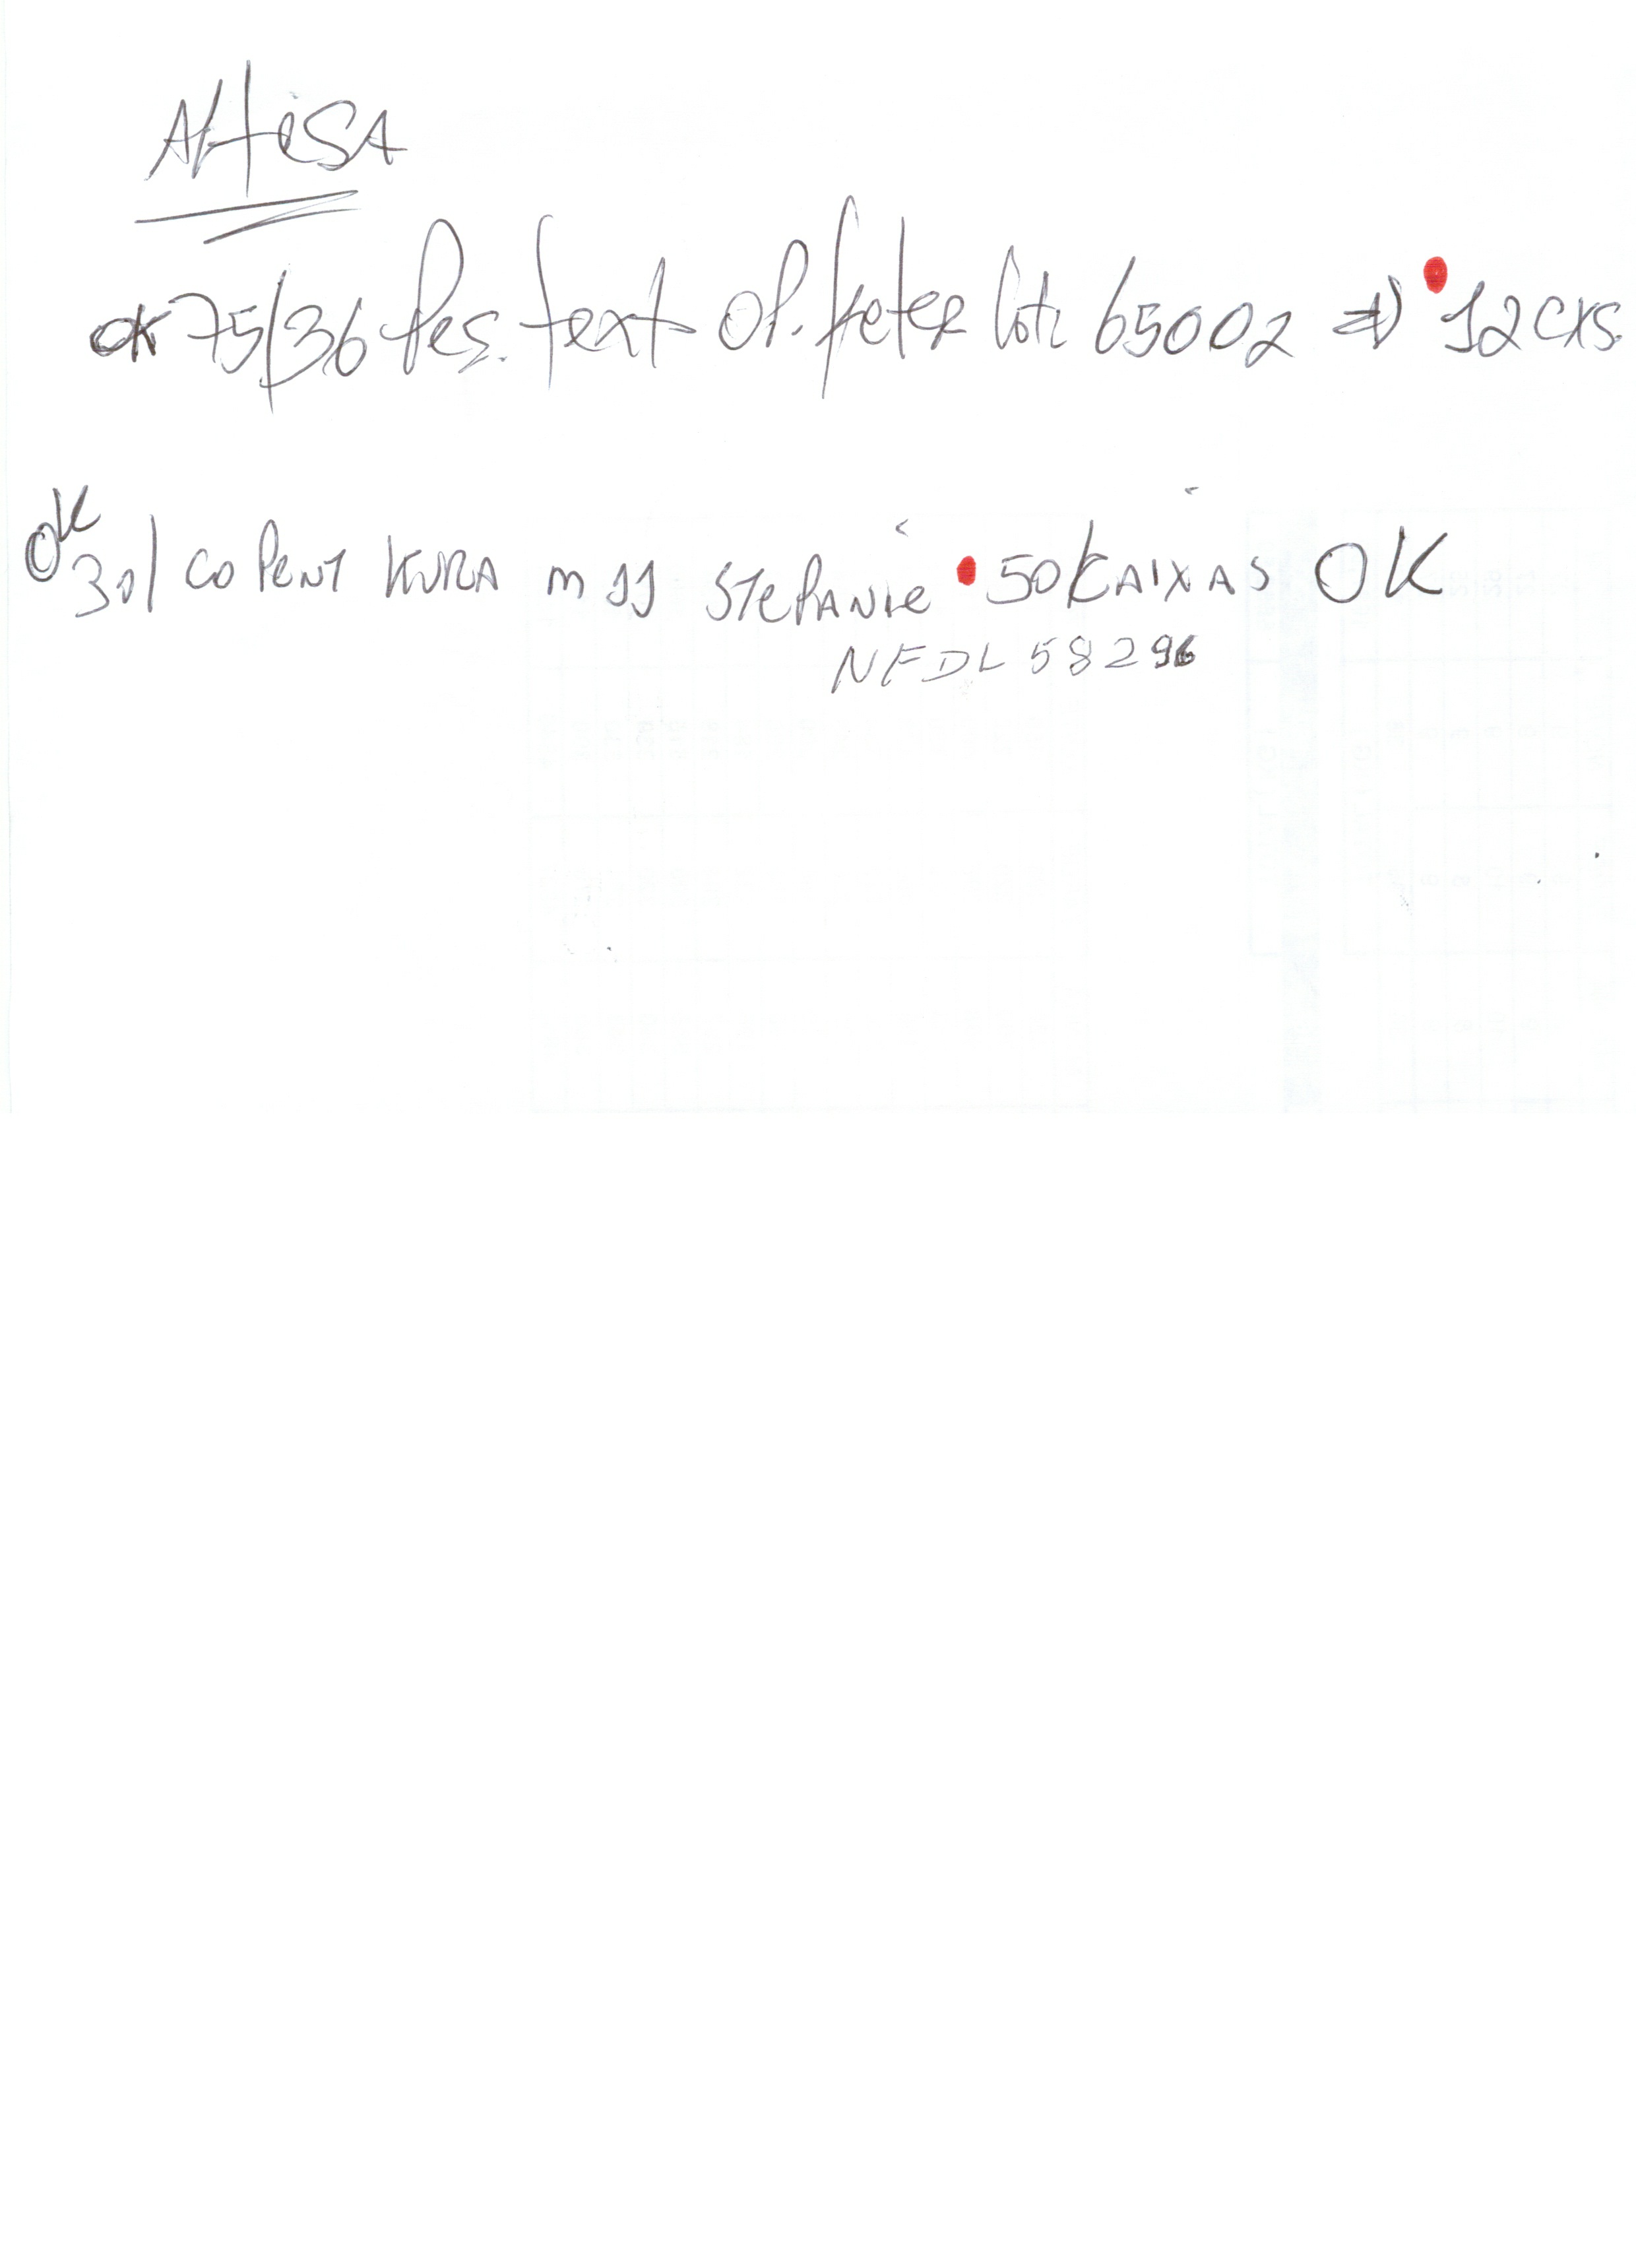 AltiSA
OK 75/36 Pes. text Op. Peter Lote 65002 => 12 CXS
OK 30/1 CO PENT KURA m JJ STEPANIE 50 CAIXAS OK
NFDL 58296